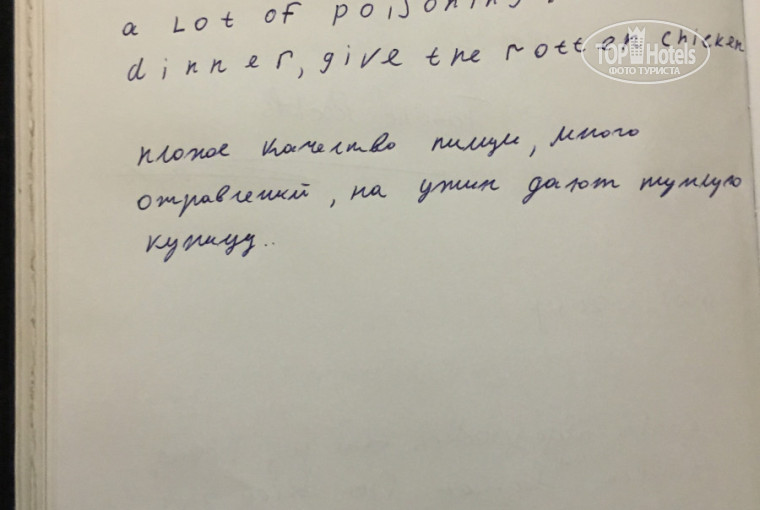 a Lot of poisoning
dinner, give the rotten chicken
плохое качество пищи, много
отравлений, на ужин дают тухлую
курицу..
TOP Hotels
ФОТО ТУРИСТА